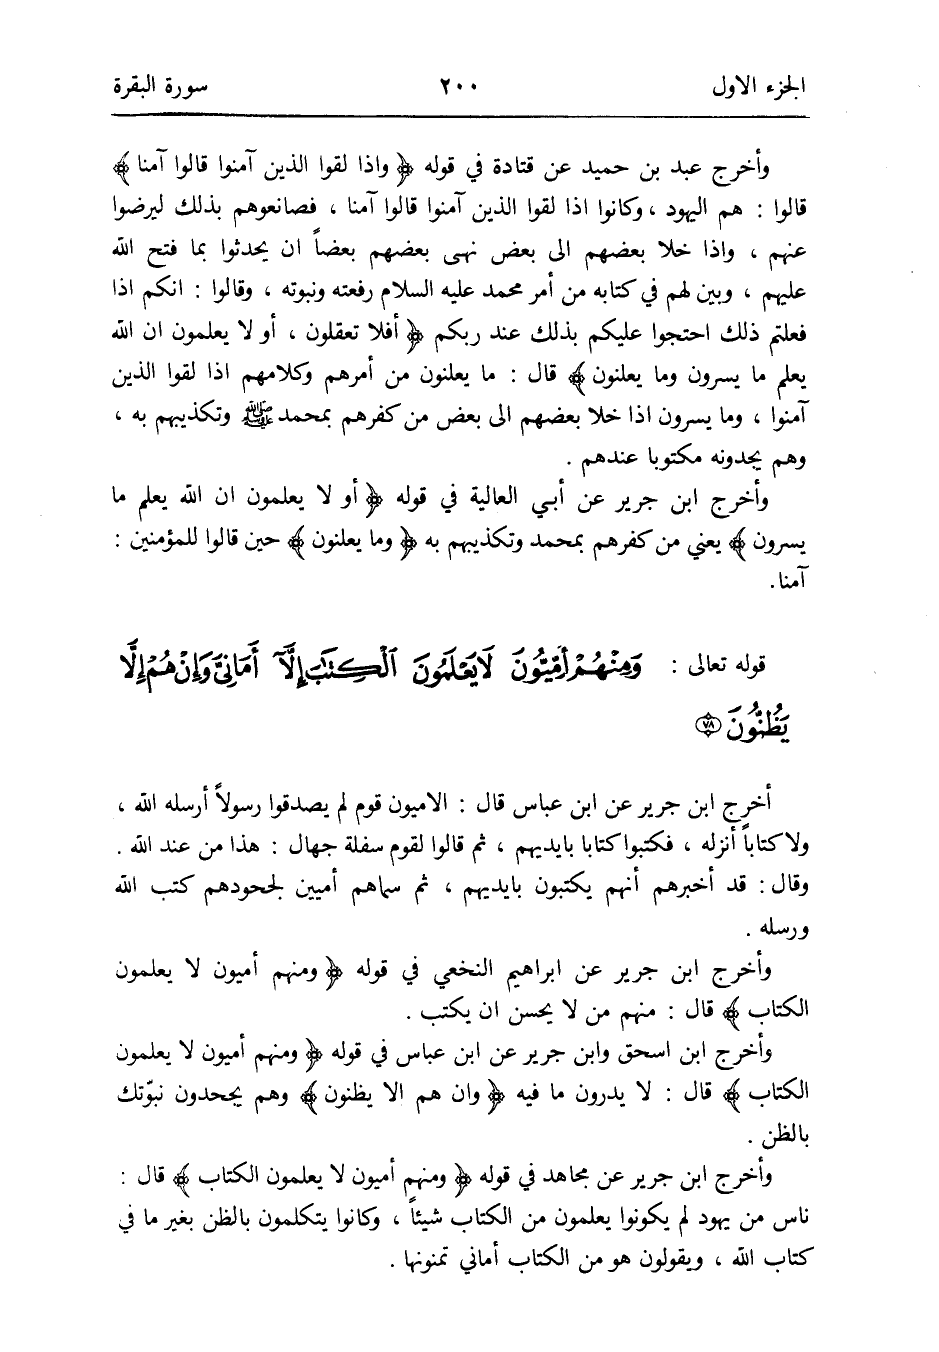 الجزء الاول ٢٠٠ سورة البقرة
وأخرج عبد بن حميد عن قتادة في قوله ﴿ واذا لقوا الذين آمنوا قالوا آمنا ﴾
قالوا : هم اليهود ، وكانوا اذا لقوا الذين آمنوا قالوا آمنا ، فصانعوهم بذلك ليرضوا
عنهم ، واذا خلا بعضهم الى بعض نهى بعضهم بعضاً ان يحدثوا بما فتح الله
عليهم ، وبين لهم في كتابه من أمر محمد عليه السلام رفعته ونبوته ، وقالوا : انكم اذا
فعلتم ذلك احتجوا عليكم بذلك عند ربكم ﴿ أفلا تعقلون ، أو لا يعلمون ان الله
يعلم ما يسرون وما يعلنون ﴾ قال : ما يعلنون من أمرهم وكلامهم اذا لقوا الذين
آمنوا ، وما يسرون اذا خلا بعضهم الى بعض من كفرهم بمحمد ﷺ وتكذيبهم به ،
وهم يجدونه مكتوبا عندهم .
وأخرج ابن جرير عن أبي العالية في قوله ﴿ أو لا يعلمون ان الله يعلم ما
يسرون ﴾ يعني من كفرهم بمحمد وتكذيبهم به ﴿ وما يعلنون ﴾ حين قالوا للمؤمنين :
آمنا .
قوله تعالى : وَمِنْهُمْ أُمِّيُّونَ لَا يَعْلَمُونَ ٱلْكِتَٰبَ إِلَّآ أَمَانِيَّ وَإِنْ هُمْ إِلَّا
يَظُنُّونَ ٧٨
أخرج ابن جرير عن ابن عباس قال : الاميون قوم لم يصدقوا رسولاً أرسله الله ،
ولا كتاباً أنزله ، فكتبوا كتابا بايديهم ، ثم قالوا لقوم سفلة جهال : هذا من عند الله .
وقال : قد أخبرهم أنهم يكتبون بايديهم ، ثم سماهم أميين لجحودهم كتب الله
ورسله .
وأخرج ابن جرير عن ابراهيم النخعي في قوله ﴿ ومنهم أميون لا يعلمون
الكتاب ﴾ قال : منهم من لا يحسن ان يكتب .
وأخرج ابن اسحق وابن جرير عن ابن عباس في قوله ﴿ ومنهم أميون لا يعلمون
الكتاب ﴾ قال : لا يدرون ما فيه ﴿ وان هم الا يظنون ﴾ وهم يجحدون نبوّتك
بالظن .
وأخرج ابن جرير عن مجاهد في قوله ﴿ ومنهم أميون لا يعلمون الكتاب ﴾ قال :
ناس من يهود لم يكونوا يعلمون من الكتاب شيئاً ، وكانوا يتكلمون بالظن بغير ما في
كتاب الله ، ويقولون هو من الكتاب أماني تمنونها .